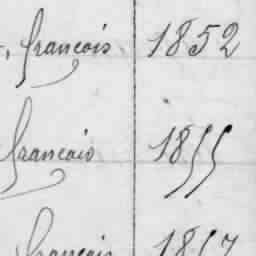 françois 1852
français 1855
français 1857